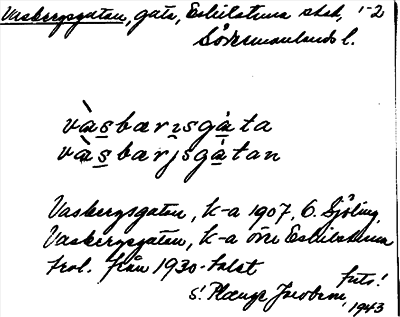 Vasbergsgatan, gata, Eskilstuna stad, 1-2
Södermanlands l.
vàsbærıs̱gåta
vàsbærjsgåtan
Vasbergsgatan, k-a 1907, C. Sjöling,
Vasbergsgatan, k-a över Eskilstuna
trol. från 1930-talet
foto!
S. Plænge Jacobson, 1943